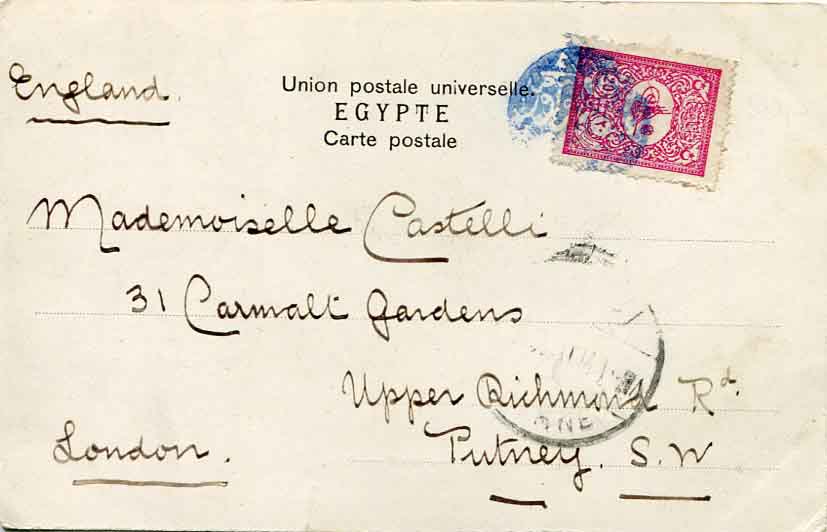 England.
Union postale universelle.
EGYPTE
Carte postale
Mademoiselle Castelli
31 Carmalt Gardens
Upper Richmond Rd.
Putney. S. W
London.